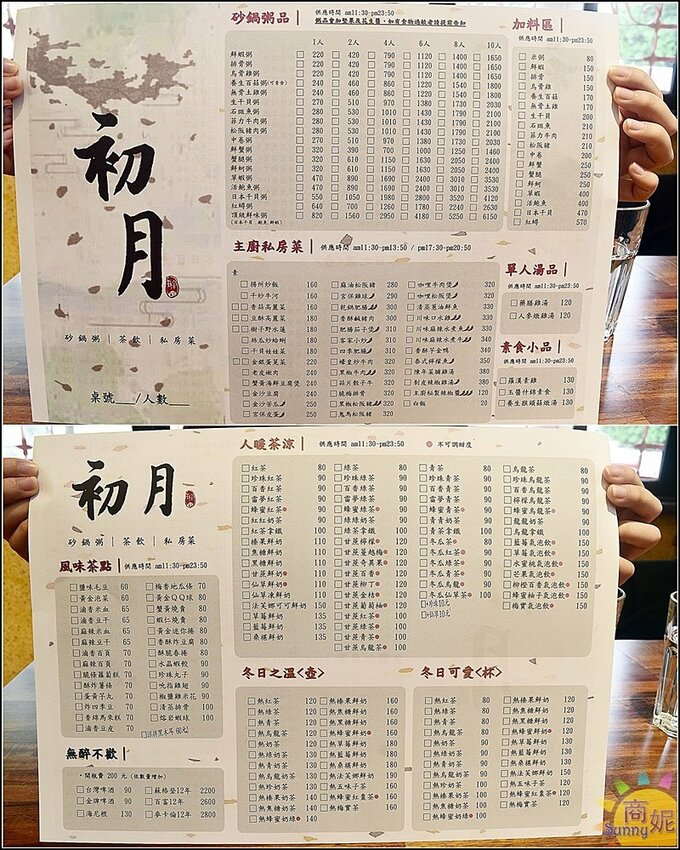 初月
砂鍋粥｜茶飲｜私房菜
桌號___/人數___
砂鍋粥品｜ 供應時間 am11:30-pm23:50
粥品會加堅果及花生醬，如有食物過敏者請提前告知
1人 2人 4人 6人 8人 10人
鮮蝦粥 220 420 790 1120 1400 1650
排骨粥 220 420 790 1120 1400 1650
烏骨雞粥 220 420 790 1120 1400 1650
養生百菇粥(可素食) 240 460 860 1220 1540 1820
無骨土雞粥 240 460 860 1220 1540 1820
生干貝粥 270 510 970 1380 1730 2030
石斑魚粥 280 530 1010 1430 1790 2100
菲力牛肉粥 280 530 1010 1430 1790 2100
松阪豬肉粥 280 530 1010 1430 1790 2100
中卷粥
鮮蟹粥 320
蟹腿粥
鮮蚵粥
草蝦粥 470 890
活鮑魚粥 470 890
日本干貝粥 540
紅蟳粥 640 700 1260 1780 2240 2630
頂級鮮味粥 820 1560 2950 4180 5250 6150
(日本干貝.鮑魚.鮮蝦)
加料區｜
供應時間 am11:30-pm23:50
米粥 80
鮮蝦 150
排骨 150
烏骨雞 150
養生百菇 170
無骨土雞 170
生干貝 200
石斑魚 210
菲力牛肉 210
松阪豬 210
中卷 200
鮮蟹 250
蟹腿 250
鮮蚵 250
草蝦 400
活鮑魚 400
日本干貝 470
紅蟳 570
主廚私房菜｜ 供應時間 am11:30-pm13:50 / pm17:30-pm20:50
素
揚州炒飯 160
干炒牛河 160
香菇高麗菜 160
豆酥高麗菜 180
樹子野水蓮 180
絲瓜炒蛤蜊 180
干貝娃娃菜 180
金銀蛋莧菜 220
老皮嫩肉 240
蟹黃海鮮豆腐煲 240
金沙豆腐 240
金沙苦瓜 250
宮保皮蛋 250
麻油松阪豬 280
宮保雞丁 300
乾鍋肥腸 300
香酥鹹豬肉 300
肥腸茄子煲 310
客家小炒 310
四季肥腸 310
螺皇炒牛肉 320
黑椒牛肉 320
蒜片骰子牛 320
黑椒松阪豬 320
鬼馬松阪豬 320
咖哩牛肉煲 320
咖哩松阪煲 320
清蒸蔥油鮮魚 320
川味口水雞 320
川味麻辣水煮魚 320
川味麻辣水煮牛 340
香酥子金鴨 340
泰式檸檬魚 350
陳年菜脯雞 350
剝皮辣椒雞湯 350
主廚秘製辣椒醬 120
白飯 20
單人湯品｜
供應時間 am11:30-pm23:50
藥膳雞湯 120
人參燉雞湯 120
素食小品｜
供應時間 am11:30-pm23:50
羅漢素雞 130
玉醬什錦素食 130
養生猴頭菇燉湯 130
初月
砂鍋粥｜茶飲｜私房菜
風味茶點｜ 供應時間 am11:30-pm23:50
鹽味毛豆 60
黃金泡菜 60
滷香米血 65
滷香豆干 65
麻辣米血 65
麻辣豆干 65
滷香百頁 70
麻辣百頁 70
脆條蘿蔔糕 70
酥炸薯條 70
蛋黃芋丸 70
炸四季豆 70
香綿馬來糕 70
滷香豆皮 70
梅香地瓜條 70
黃金QQ球 80
蟹黃燒賣 80
蝦仁燒賣 80
黃金迷你捲 80
香酥炸豆腐 80
酥脆春捲 80
水晶蝦餃 90
珍珠丸子 90
吮指雞翅 90
椒鹽雞米花 90
清蒸排骨 100
熔岩蝦球 100
涼拌黑木耳 60元
無醉不歡｜
・開瓶費 200 元 (依數量增加)
台灣啤酒 90
金牌啤酒 90
海尼根 130
蘇格登12年 2200
百富12年 2600
麥卡倫12年 2800
人暖茶涼｜ 供應時間 am11:30-pm23:50 ●不可調甜度
紅茶 80
珍珠紅茶 90
百香紅茶 90
雷夢紅茶 90
蜂蜜紅茶 90
紅紅奶茶 90
紅茶拿鐵 100
榛果鮮奶 110
焦糖鮮奶 110
甘蔗鮮奶 110
仙草鮮奶 110
仙草凍鮮奶 110
法芙娜可可鮮奶 150
草莓鮮奶 135
藍莓鮮奶 135
桑椹鮮奶 135
綠茶 80
珍珠綠茶 90
百香綠茶 90
雷夢綠茶 90
蜂蜜綠茶 90
綠綠奶茶 90
綠茶拿鐵 100
甘蔗檸檬 100
甘蔗蔓越梅 100
甘蔗奇異果 100
甘蔗百香 100
甘蔗柳丁 100
甘蔗金桔 100
甘蔗葡萄柚 120
甘蔗青茶 100
甘蔗紅茶 100
甘蔗綠茶 100
甘蔗烏龍茶 100
青茶 80
珍珠青茶 90
百香青茶 90
雷夢青茶 90
蜂蜜青茶 90
青青奶茶 90
青茶拿鐵 100
冬瓜茶 80
冬瓜紅茶 90
冬瓜綠茶 90
冬瓜青茶 90
冬瓜奶茶 90
冬瓜仙草茶 90
+珍珠10元
+仙草10元
烏龍茶 80
珍珠烏龍茶 90
檸檬烏龍茶 90
蜂蜜烏龍茶 90
龍龍奶茶 90
烏龍拿鐵 100
藍莓氣泡飲 150
草莓氣泡飲 150
水蜜桃氣泡飲 150
芒果氣泡飲 150
柳橙百香氣泡飲 150
蜂蜜柚子氣泡飲 150
梅實氣泡飲 150
冬日之溫<壺>
熱紅茶 120
熱綠茶 120
熱青茶 120
熱烏龍茶 120
熱奶茶 130
熱綠奶茶 130
熱青奶茶 130
熱烏龍奶茶 130
熱珍奶茶 140
熱榛果奶茶 140
熱焦糖奶茶 140
熱蜂蜜奶茶 140
熱榛果鮮奶 160
熱焦糖鮮奶 160
熱黑糖鮮奶 160
熱蜂蜜鮮奶 160
熱草莓鮮奶 180
熱藍莓鮮奶 180
熱桑椹鮮奶 180
熱法芙娜鮮奶 190
熱五味子茶 160
熱黑糖薑茶 160
熱蜂蜜紅棗茶 160
熱梅實茶 160
冬日可愛<杯>
熱紅茶 80
熱綠茶 80
熱青茶 80
熱烏龍茶 80
熱奶茶 90
熱綠奶茶 90
熱青奶茶 90
熱烏龍奶茶 90
熱珍奶茶 100
熱榛果奶茶 100
熱焦糖奶茶 100
熱蜂蜜奶茶 100
熱榛果鮮奶 120
熱焦糖鮮奶 120
熱黑糖鮮奶 120
熱蜂蜜鮮奶 120
熱草莓鮮奶 130
熱藍莓鮮奶 130
熱桑椹鮮奶 130
熱法芙娜鮮奶 150
熱五味子茶 120
熱黑糖薑茶 120
熱蜂蜜紅棗茶 120
熱梅實茶 120
商妮
Sunny